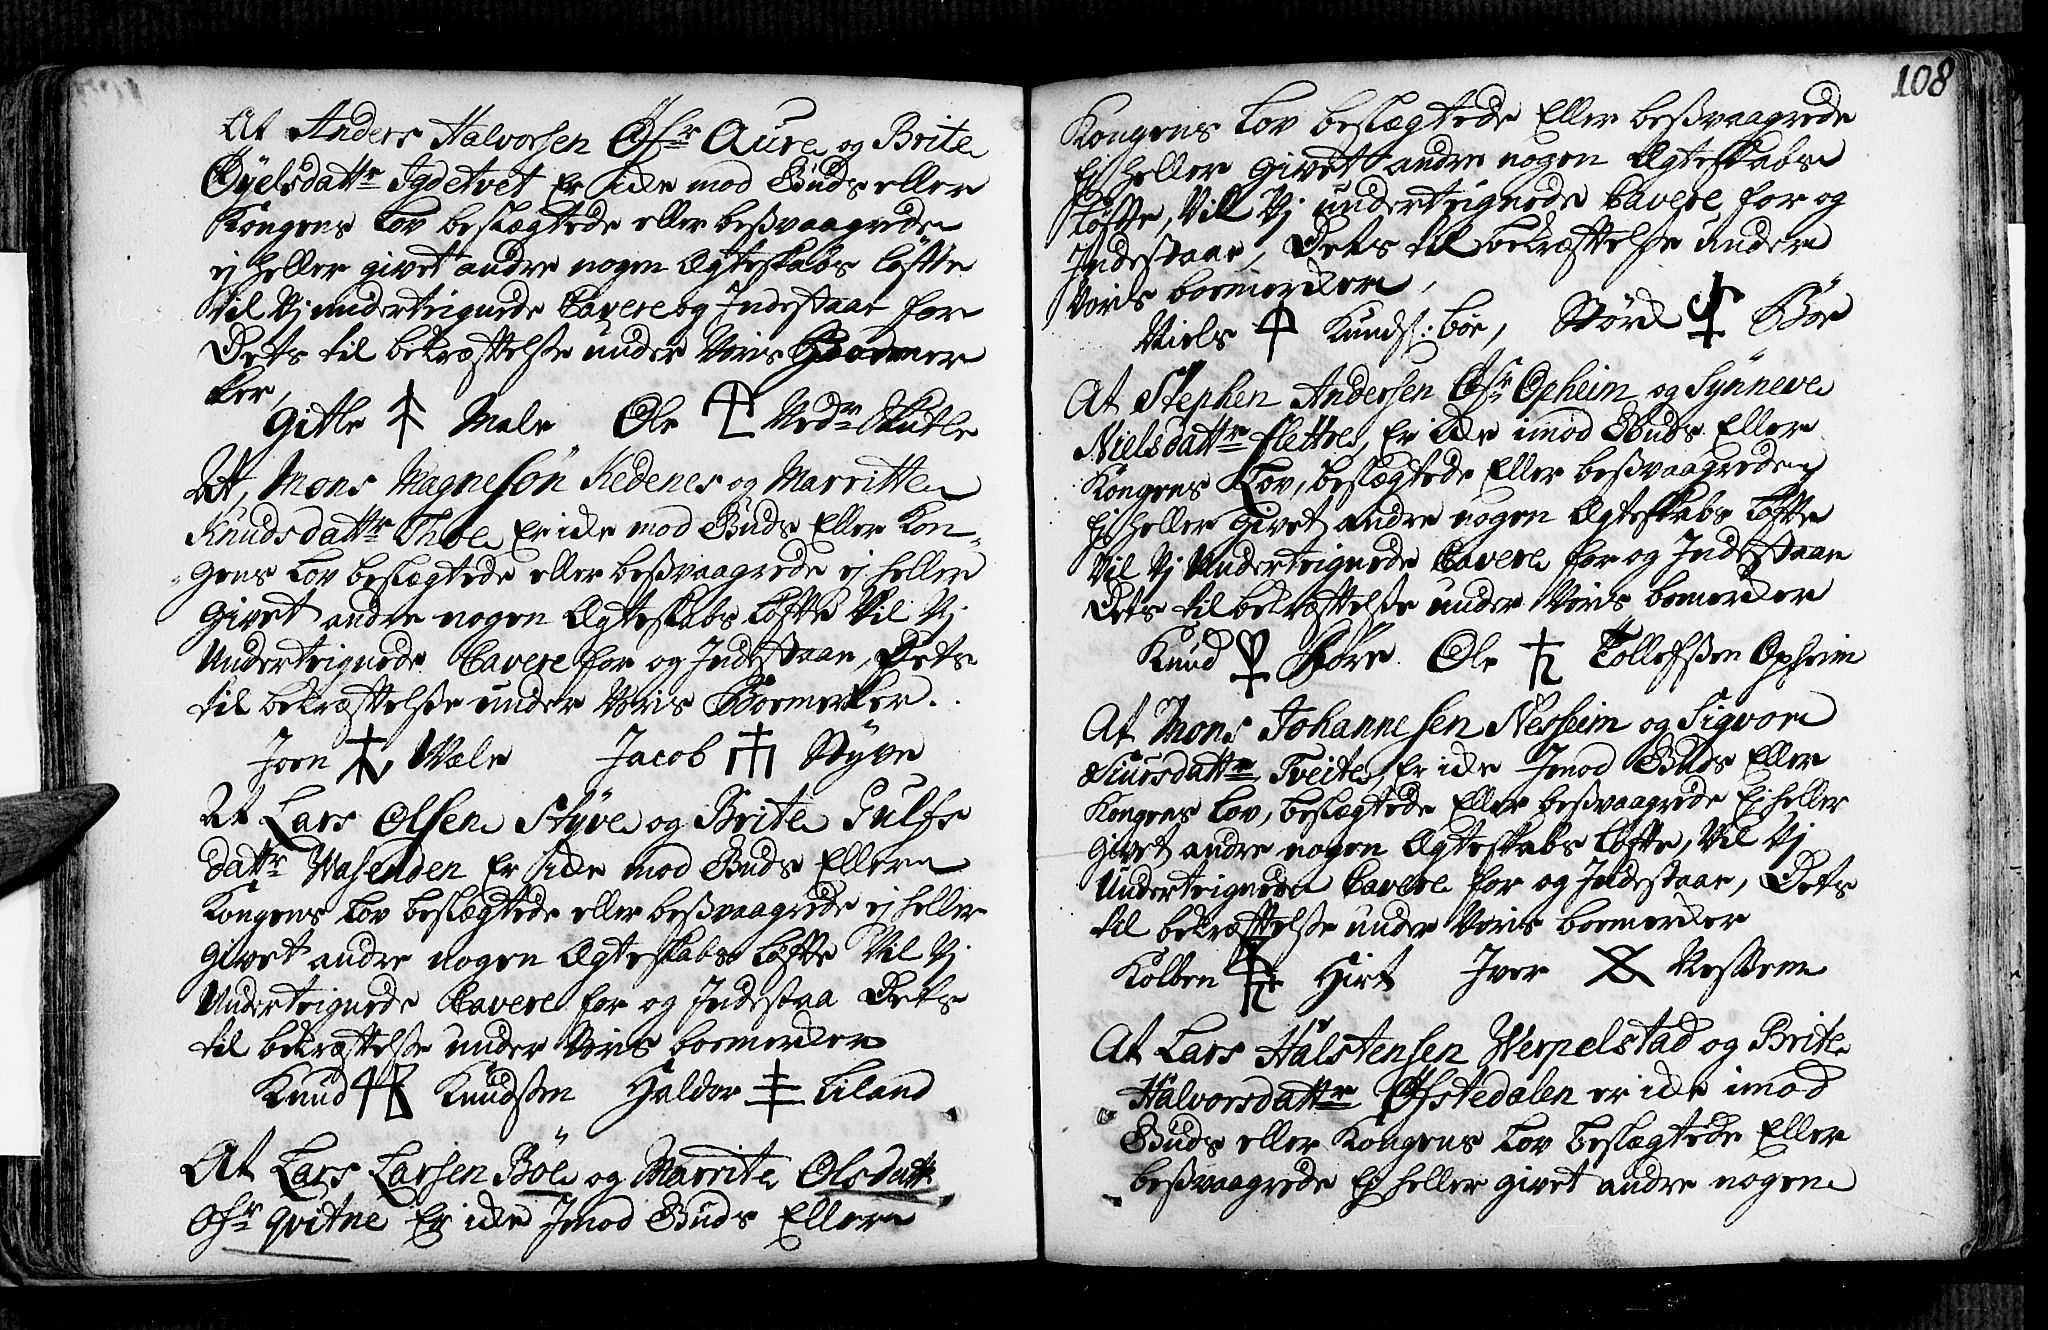 At Anders Halvorsen Ofr Aure og Brite
Öyelsdattr Igdetvet Er icke mod Guds eller
Kongens Lov beslægtede eller beßvaagrede
ej heller givet andre nogen Ægteskabs löfte
til Vj undertegnede Cavere og Indestaar for
Dets til bekræftelße under Voris Boemer
ker,
Gitle Mæle Ole Nedr Skutle
At, Mons Magnesön Kedenes og Marritte
Knudsdattr Thoe Er icke mod Guds Eller Kon-
gens Lov beslægtede eller beßvaagrede ej heller
Givet andre nogen Ægteskabs Löfte Vil Vj
Undertegnede Cavere for og Indestaar, Dets
til bekræftelße under Voris Boemerker.
Joen Mæle Jacob Styve
At Lars Olsen Styve og Brite Gulfs
dattr Wasenden Er icke mod Guds Eller
Kongens Lov beslægtede eller beßvaagrede ej heller
Givet andre nogen Ægteskabs Löfte Vil Vj
Undertegnede Cavere for og Indestaa Dets
til bekræftelße under Voris boemercker
Knud Knudßen Haldor Liland
At Lars Larsen Böe og Marrite Olsdattr
Ofr Qvitne Er icke Imod Guds Eller
108
Kongens Lov beslægtede Eller beßvaagrede
Ej heller Givet andre nogen Ægteskabs
Löfte, Vill Vj undertegnede Cavere for og
Indestaar, Dets til bekræftelße under
Voris boemercker,
Niels Knuds: böe, Störck Böe
At Stephen Andersen Ofr Opheim og Synneve
Nielsdattr Flettre, Er icke imod Guds Eller
Kongens Lov, beslægtede Eller beßvaagrede
Ej heller Givet andre nogen Ægteskabs Löfte
Vil Vj Undertegnede Cavere for og Indestaar
Dets til bekræftelße under Voris boemercker
Knud Ole Tollefsßen Opheim
At Mons Johannesen Nesheim og Sigvor
Siursdattr Tveite, Er icke Imod Guds Eller
Kongens Lov, beslægtede Eller beßvaagrede Ej heller
Givet andre nogen Ægteskabs Löfte, Vil Vj
Undertegnede Cavere for og Indestaar, Dets
til bekræftelße under Voris boemercker
Kolben Hirt Iver Neßem
At Lars Halstensen Werpelstad og Brite
Halvorsdattr Ofstedalen er icke imod
Guds eller Kongens Lov beslægtede Eller
beßvaagrede Ej heller givet andre nogen